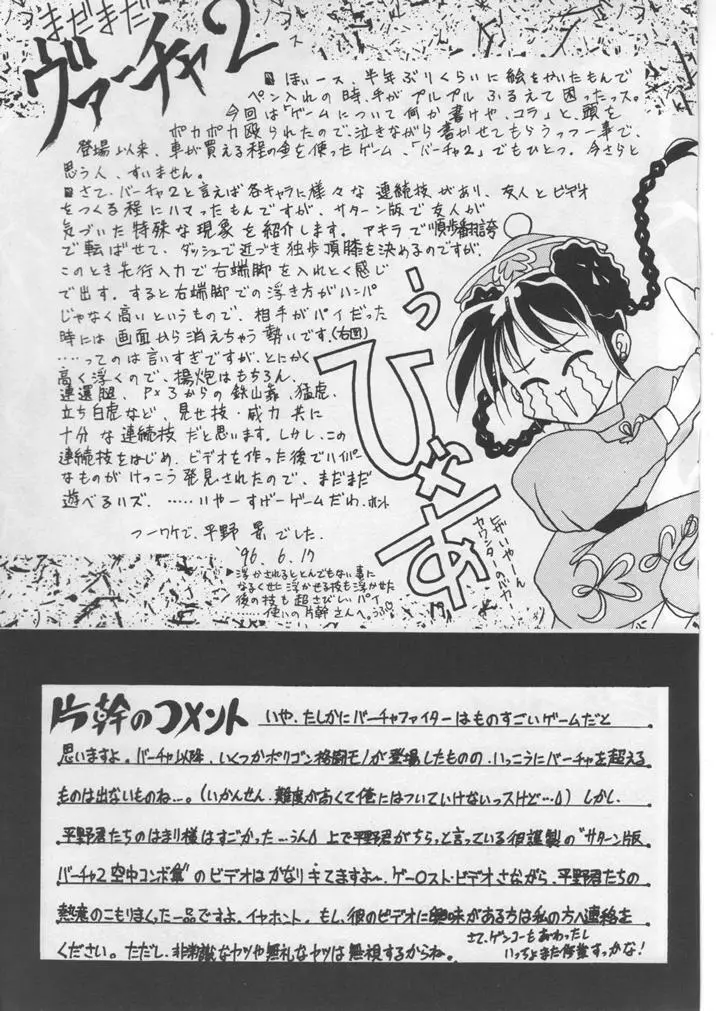 まだまだ
ヴァーチャ2
ほいース、半年ぶりくらいに絵をかいたもんで
ペン入れの時、手がプルプルふるえて困ったっス。
今回は「ゲームについて何か書けや、コラ」と、頭を
ポカポカ殴られたので、泣きながら書かせてもらうっつー事で、
登場以来、車が買える程の金を使ったゲーム、「バーチャ2」でもひとつ。今さらと
思う人、すいません。
さて、バーチャ2と言えば各キャラに様々な連続技があり、友人とビデオ
をつくる程にハマったもんですが、サターン版で友人が
気づいた特殊な現象を紹介します。アキラで順歩翻誇
で転ばせて、ダッシュで近づき独歩頂膝を決めるのですが、
このとき先行入力で右端脚を入れとく感じ
で出す。すると右端脚での浮き方がハンパ
じゃなく高いというもので、相手がパイだった
時には画面から消えちゃう勢いです。(右図)
……ってのは言いすぎですが、とにかく
高く浮くので、揚炮はもちろん、
連還腿、P×3からの鉄山靠、猛虎、
立ち白虎など、見せ技・威力共に
十分な連続技だと思います。しかし、この
連続技をはじめ、ビデオを作った後でハイパー
なものがけっこう発見されたので、まだまだ
遊べるハズ。……いやーすげーゲームだわ、ホント
つーワケで、平野 景でした。
'96.6.17
▶浮かされるととんでもない事に
なるくせに浮かせる技も浮かせた
後の技も超さびしいパイ
……使いの片幹さんへ。うふ♡
うっ
ひゃあ
ヒザいやーん
カウンターのバカ
片幹のコメント
いや、たしかにバーチャファイターはものすごいゲームだと
思いますよ。バーチャ以降、いくつかポリゴン格闘モノが登場したものの、いっこうにバーチャを超える
ものは出ないものね…。(いかんせん、難度が高くて俺にはついていけないっスけど…) しかし、
平野君たちのはまり様はすごかった…うん 上で平野君がちらっと言っている彼謹製の"サターン版
バーチャ2 空中コンボ集"のビデオはかなりキてますよ〜、ゲー〇スト・ビデオさながら、平野君たちの
熱意のこもりまくった一品ですよ、イヤホント。もし、彼のビデオに興味がある方は私の方へ連絡を
ください。ただし、非常識なヤツや無礼なヤツは無視するからね。
さて、ゲンコーもあがったし
いっちょまた修業すっかな!